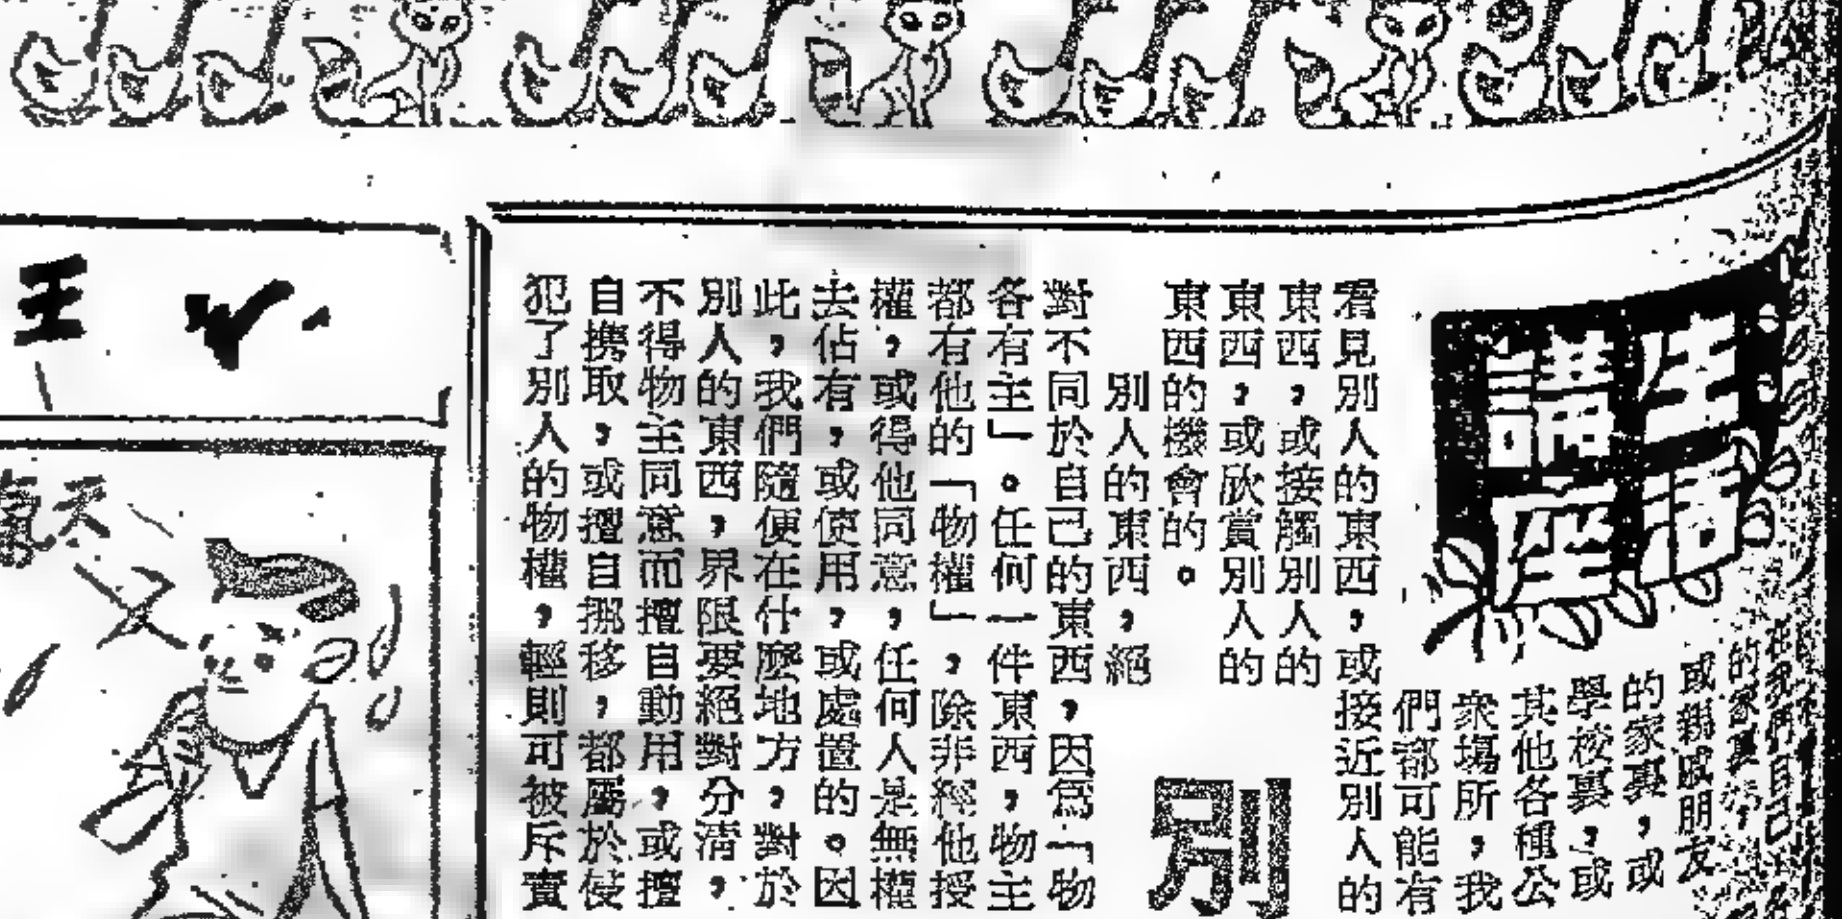 生活
講座
在我們自己
的家裏，
或親戚朋友
的家裏，或
學校裏，或
其他各種公
衆場所，我
們都可能有
看見別人的東西，或接近別人的
東西，或接觸別人的
東西，或欣賞別人的
東西的機會的。
別人的東西，絕
別
對不同於自己的東西，因爲「物
各有主」。任何一件東西，物主
都有他的「物權」，除非經他授
權，或得他同意，任何人是無權
去佔有，或使用，或處置的。因
此，我們隨便在什麼地方，對於
別人的東西，界限要絕對分清，
不得物主同意而擅自動用，或擅
自携取，或擅自挪移，都屬於侵
犯了別人的物權，輕則可被斥責
王
天
氣
又